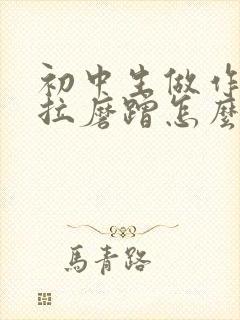 初中生做作
拉磨蹭怎麼
馬青路